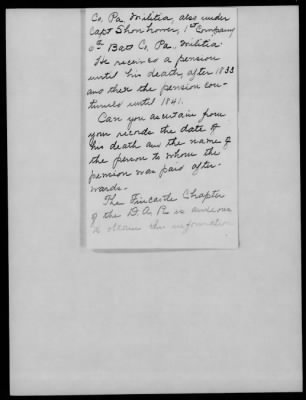 Co, Pa, Militia, also under
Capt Shonhower, 1st Company
6th Batt Co, Pa., Militia.
He received a pension
until his death, after 1833
and then the pension con-
tinued until 1841.
Can you ascertain from
your records the date of
his death and the name of
the person to whom the
pension was paid after-
wards.
The Fincastle Chapter
of the D. A. R. is anxious
to obtain this information